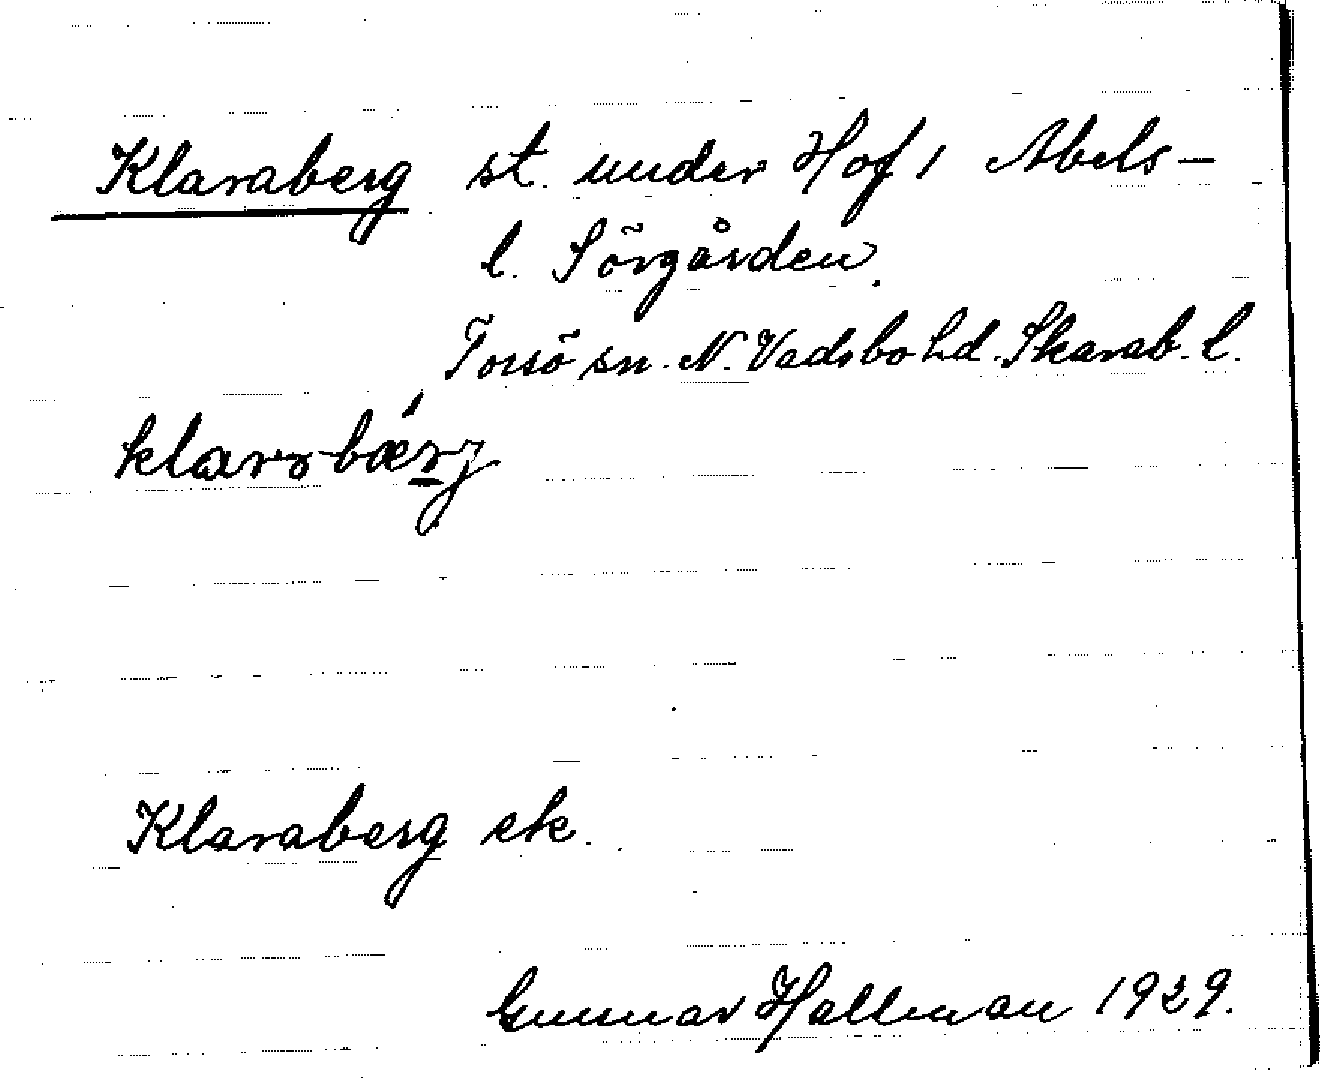 Klaraberg st. under Hof 1 Abels-
l. Sörgården.
Torsö sn. N. Vadsbo hd. Skarab. l.
Klaraberg ek.
Gunnar Hallman 1929.